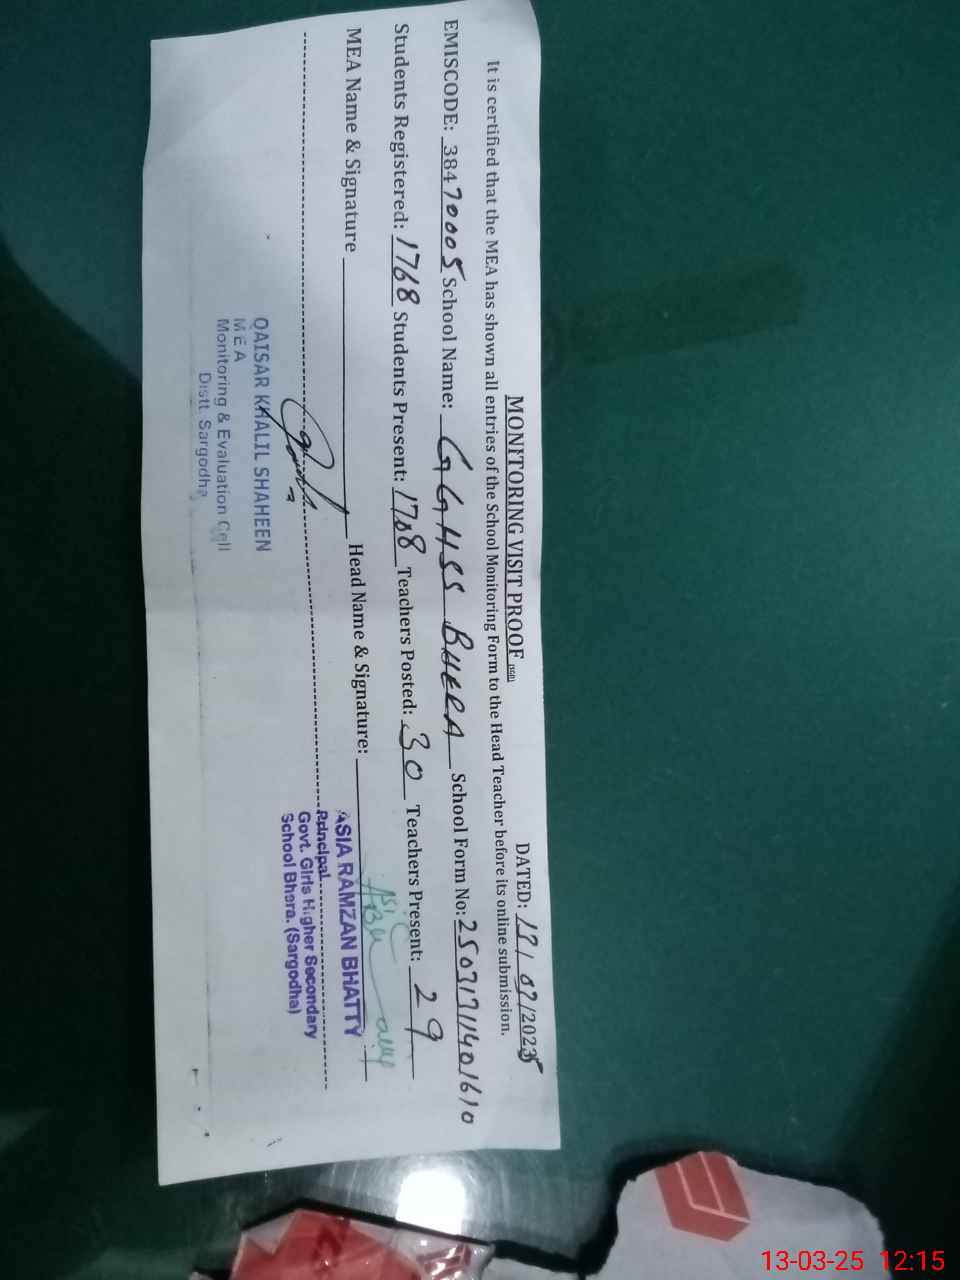 MONITORING VISIT PROOF
DATED: /2025
It is certified that the MEA has shown all entries of the School Monitoring Form to the Head Teacher before its online submission.
EMISCODE: 38470005 School Name: GGHSS BHERA School Form No:
Students Registered: 1768 Students Present: Teachers Posted: 30 Teachers Present: 29
MEA Name & Signature Head Name & Signature:
ASIA RAMZAN BHATTY
Principal
Govt. Girls Higher Secondary
School Bhera. (Sargodha)
QAISAR KHALIL SHAHEEN
MEA
Monitoring & Evaluation Cell
Distt. Sargodha
13-03-25 12:15